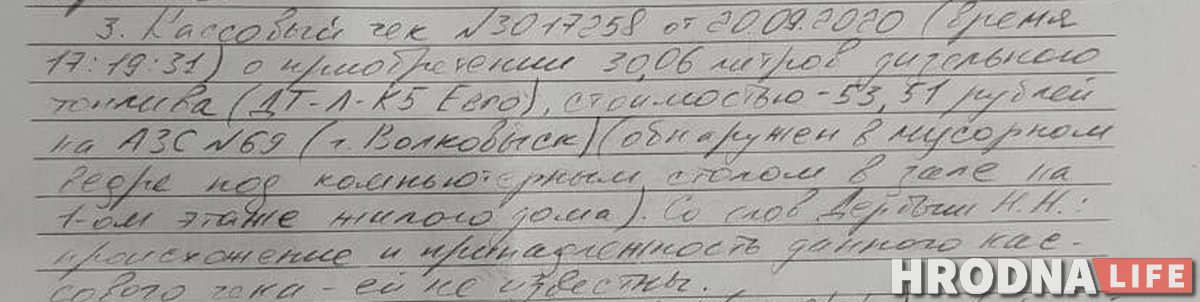 3. Кассовый чек №3017258 от 20.09.2020 (время
17:19:31) о приобретении 30,06 литров дизельного
топлива (ДТ-Л-К5 Евро), стоимостью - 53,51 рублей
на АЗС №69 (г. Волковыск) (обнаружен в мусорном
ведре под компьютерным столом в зале на
1-ом этаже жилого дома). Со слов Дербыш Н.Н.:
происхожение и принадлежность данного кас-
сового чека - ей не известны.
HRODNA LIFE